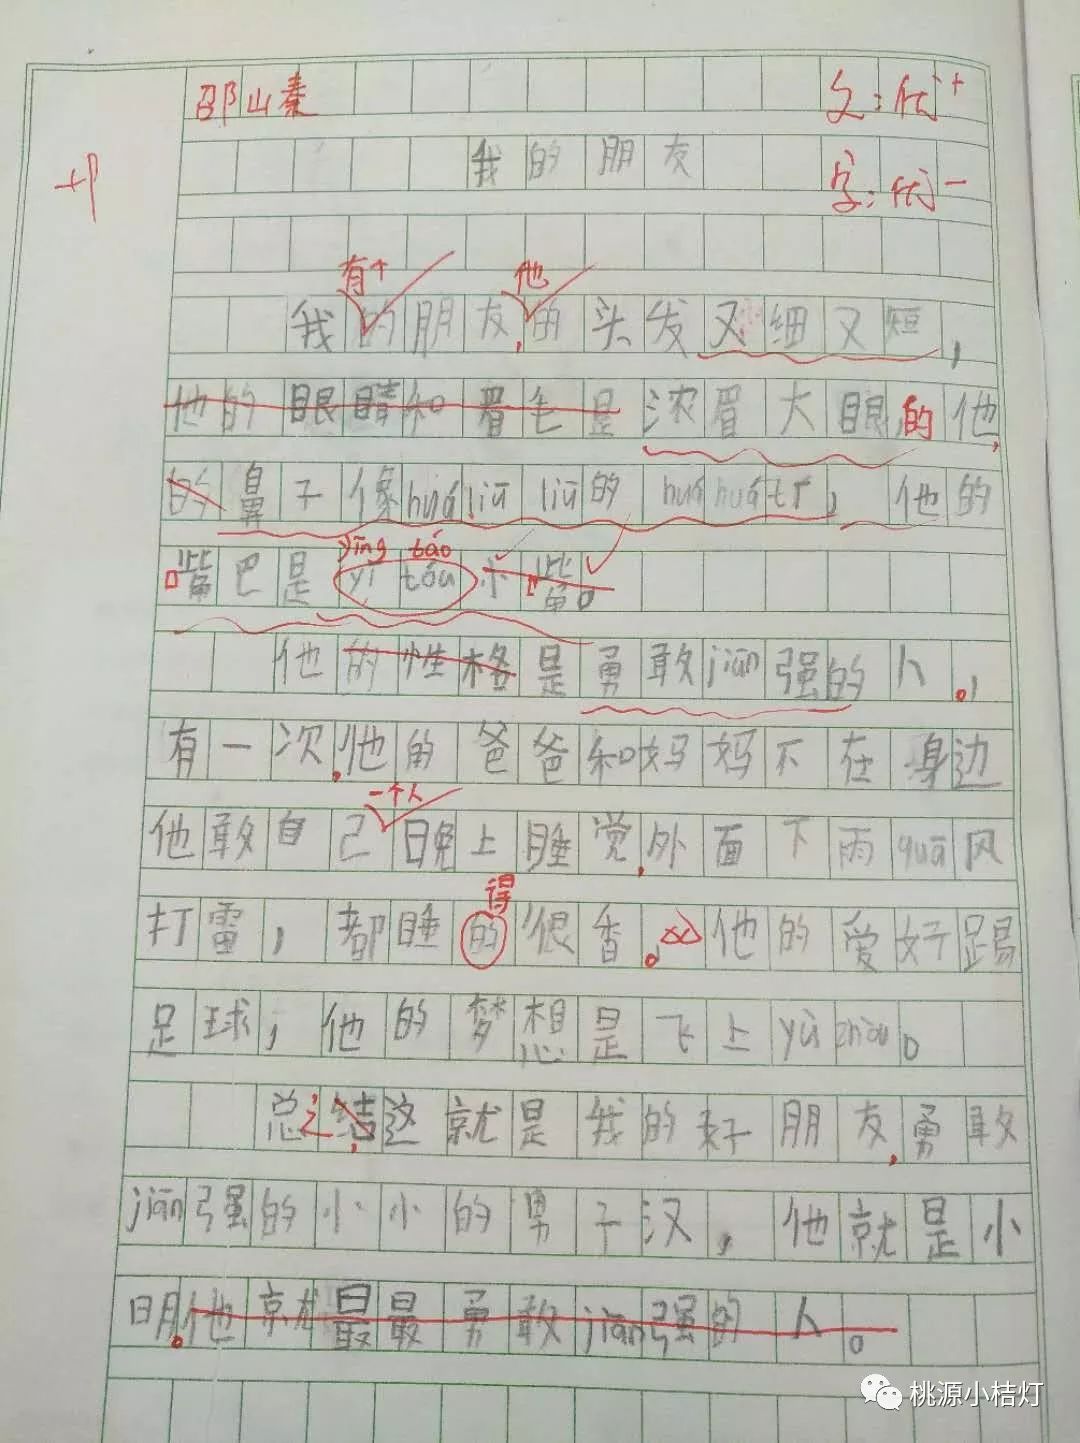 邵山秦 文:优+
我的朋友 字:优-
有个 他
我的朋友,的头发又细又短,
他的眼睛和眉毛是浓眉大眼的他,
的鼻子像huá liū liū的huá huá tī,他的
yīng táo
嘴巴是yī táu小嘴。
他的性格是勇敢jiān强的人。,
有一次,他的爸爸和妈妈不在身边
一个人
他敢自己晚上睡觉,外面下雨guā风
得
打雷,都睡的很香。他的爱好踢
足球,他的梦想是飞上yǔ zhòu。
总之结,这就是我的好朋友,勇敢
jiān强的小小的男子汉,他就是小
明。他就最最勇敢jiān强的人。
桃源小桔灯